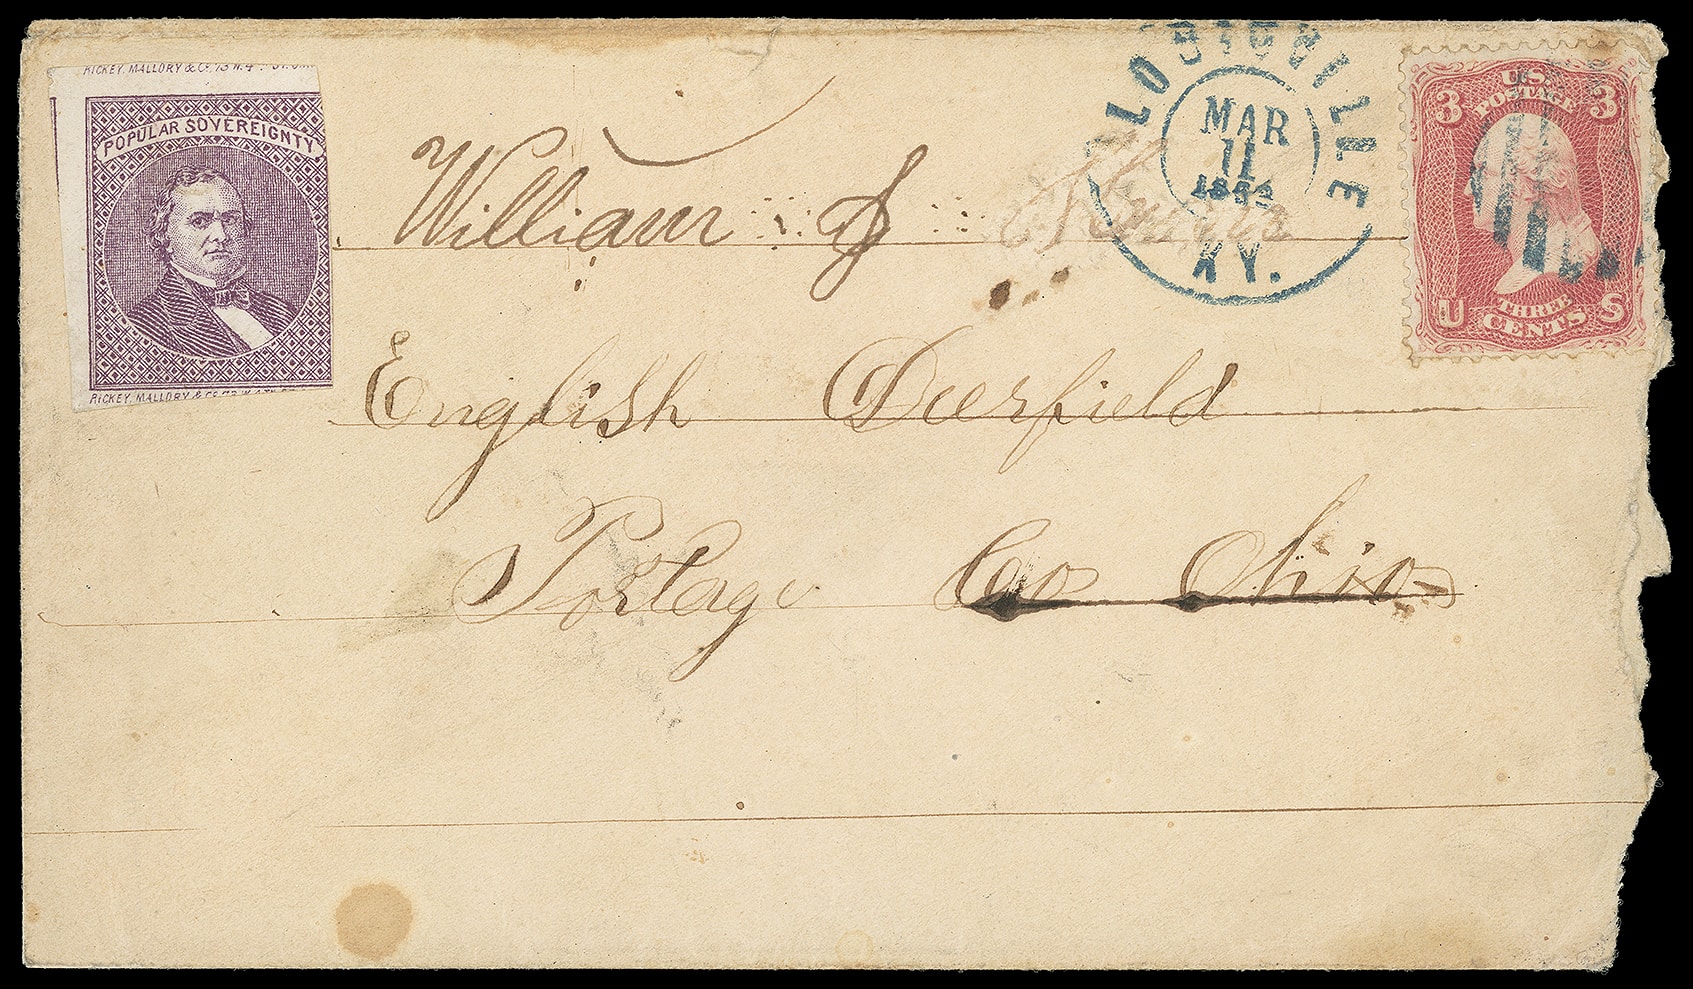 RICKEY, MALLORY & Co. 73 W. 4TH ST.
POPULAR SOVEREIGNTY
RICKEY, MALLORY & Co. 73 W. 4TH
LOUISVILLE
MAR
11
KY.
U.S.
POSTAGE
3 3
U THREE S
CENTS
William S
English Deerfield
Portage Co Ohio